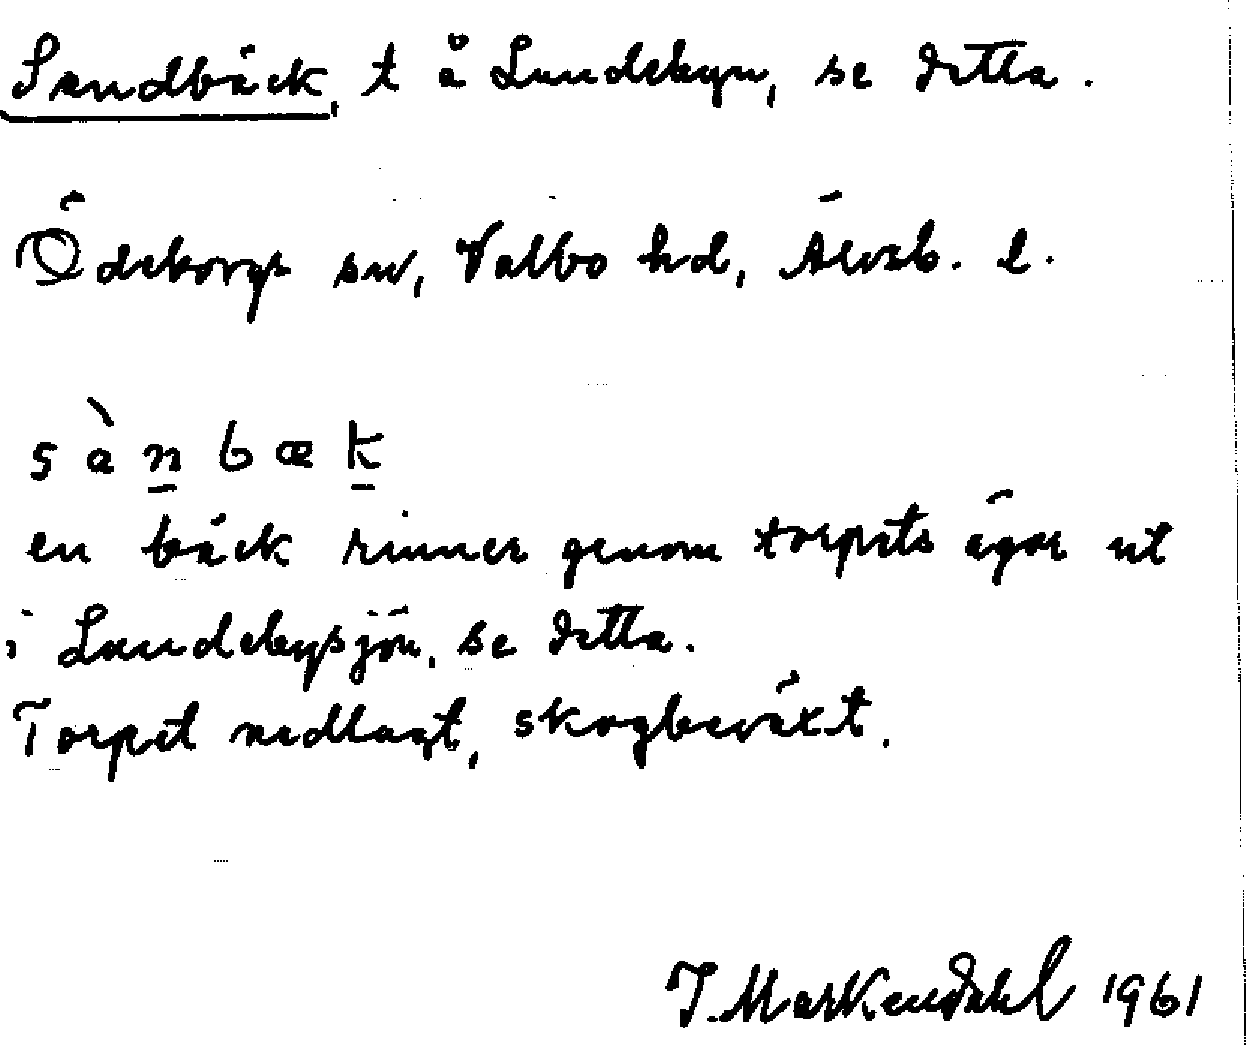 Sandbäck, t å Lundebyn, se detta.
Ödeborgs sn, Valbo hd, Älvsb. l.
sànbæk
en bäck rinner genom torpets ägor ut
i Lundebysjön, se detta.
Torpet nedlagt, skogbeväxt.
J. Markendahl 1961